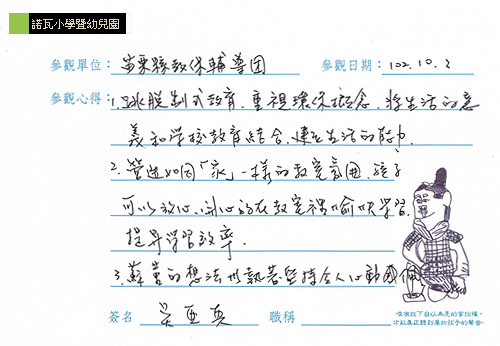 諾瓦小學暨幼兒園
參觀單位：苗栗縣教保輔導团 參觀日期：102.10.2
參觀心得：1.跳脫制式教育，重視環保概念，將生活的意
義和学校教育結合，健生活的能力。
2.營造如同「家」一樣的教室氛圍，孩子
可以放心、開心的在教室裡愉快學習，
提昇學習效率。
3.的想法与執著堅持令人心動感佩
簽名 吳亜 職稱
唯有放下自以為是的掌控權，
才能真正聽到專於孩子的聲音